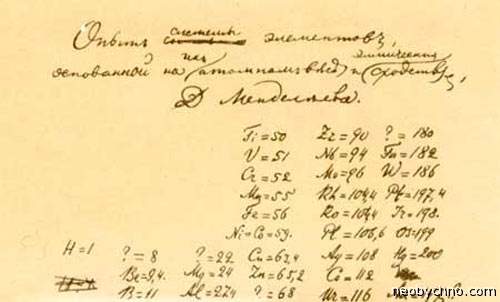 Опытъ системы элементовъ,
основанной на ихъ атомномъ вѣсѣ и химическомъ сходствѣ,
Д Менделѣева.
Ti=50 Zr=90 ?=180
V=51 Nb=94 Ta=182
Cr=52 Mo=96 W=186
Mn=55 Rh=104,4 Pt=197,4
Fe=56 Ru=104,4 Ir=198.
Ni=Co=59. Pl=106,6 Os=199
H=1 ?=8 ?=22 Cu=63,4 Ag=108 Hg=200
Be=9,4. Mg=24 Zn=65,2 Cd=112
B=11 Al=27,4 ?=68 Ur=116
neobychno.com